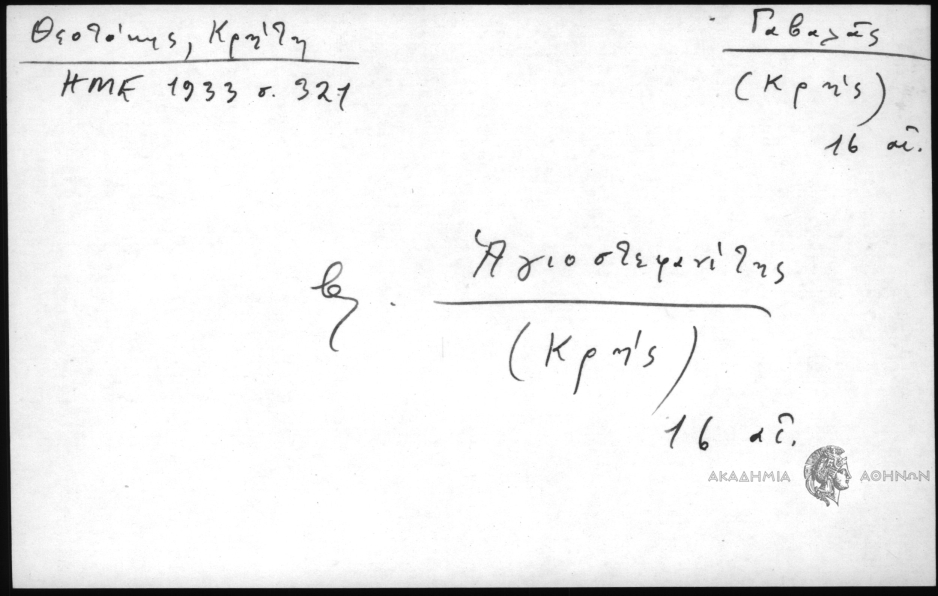 Θεοτόκης, Κρήτη
ΗΜΕ 1933 σ. 321
Γαβαλᾶς
(Κρής)
16 αἰ.
Ἁγιοστεφανίτης
(Κρής)
16 αἰ.
ΑΚΑΔΗΜΙΑ ΑΘΗΝΩΝ